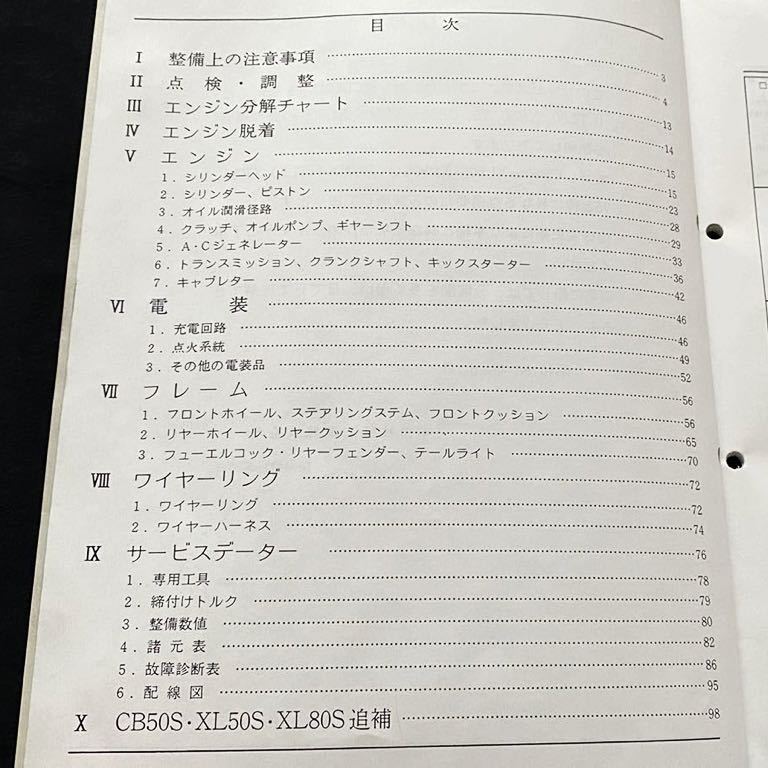 目 次
I 整備上の注意事項 3
II 点検・調整 4
III エンジン分解チャート 13
IV エンジン脱着 14
V エンジン 15
1．シリンダーヘッド 15
2．シリンダー、ピストン 23
3．オイル潤滑径路 28
4．クラッチ、オイルポンプ、ギヤーシフト 29
5．A・Cジェネレーター 33
6．トランスミッション、クランクシャフト、キックスターター 36
7．キャブレター 42
VI 電装 46
1．充電回路 46
2．点火系統 49
3．その他の電装品 52
VII フレーム 56
1．フロントホイール、ステアリングステム、フロントクッション 56
2．リヤーホイール、リヤークッション 65
3．フューエルコック・リヤーフェンダー、テールライト 70
VIII ワイヤーリング 72
1．ワイヤーリング 72
2．ワイヤーハーネス 74
IX サービスデーター 76
1．専用工具 78
2．締付けトルク 79
3．整備数値 80
4．諸元表 82
5．故障診断表 86
6．配線図 95
X CB50S・XL50S・XL80S追補 98